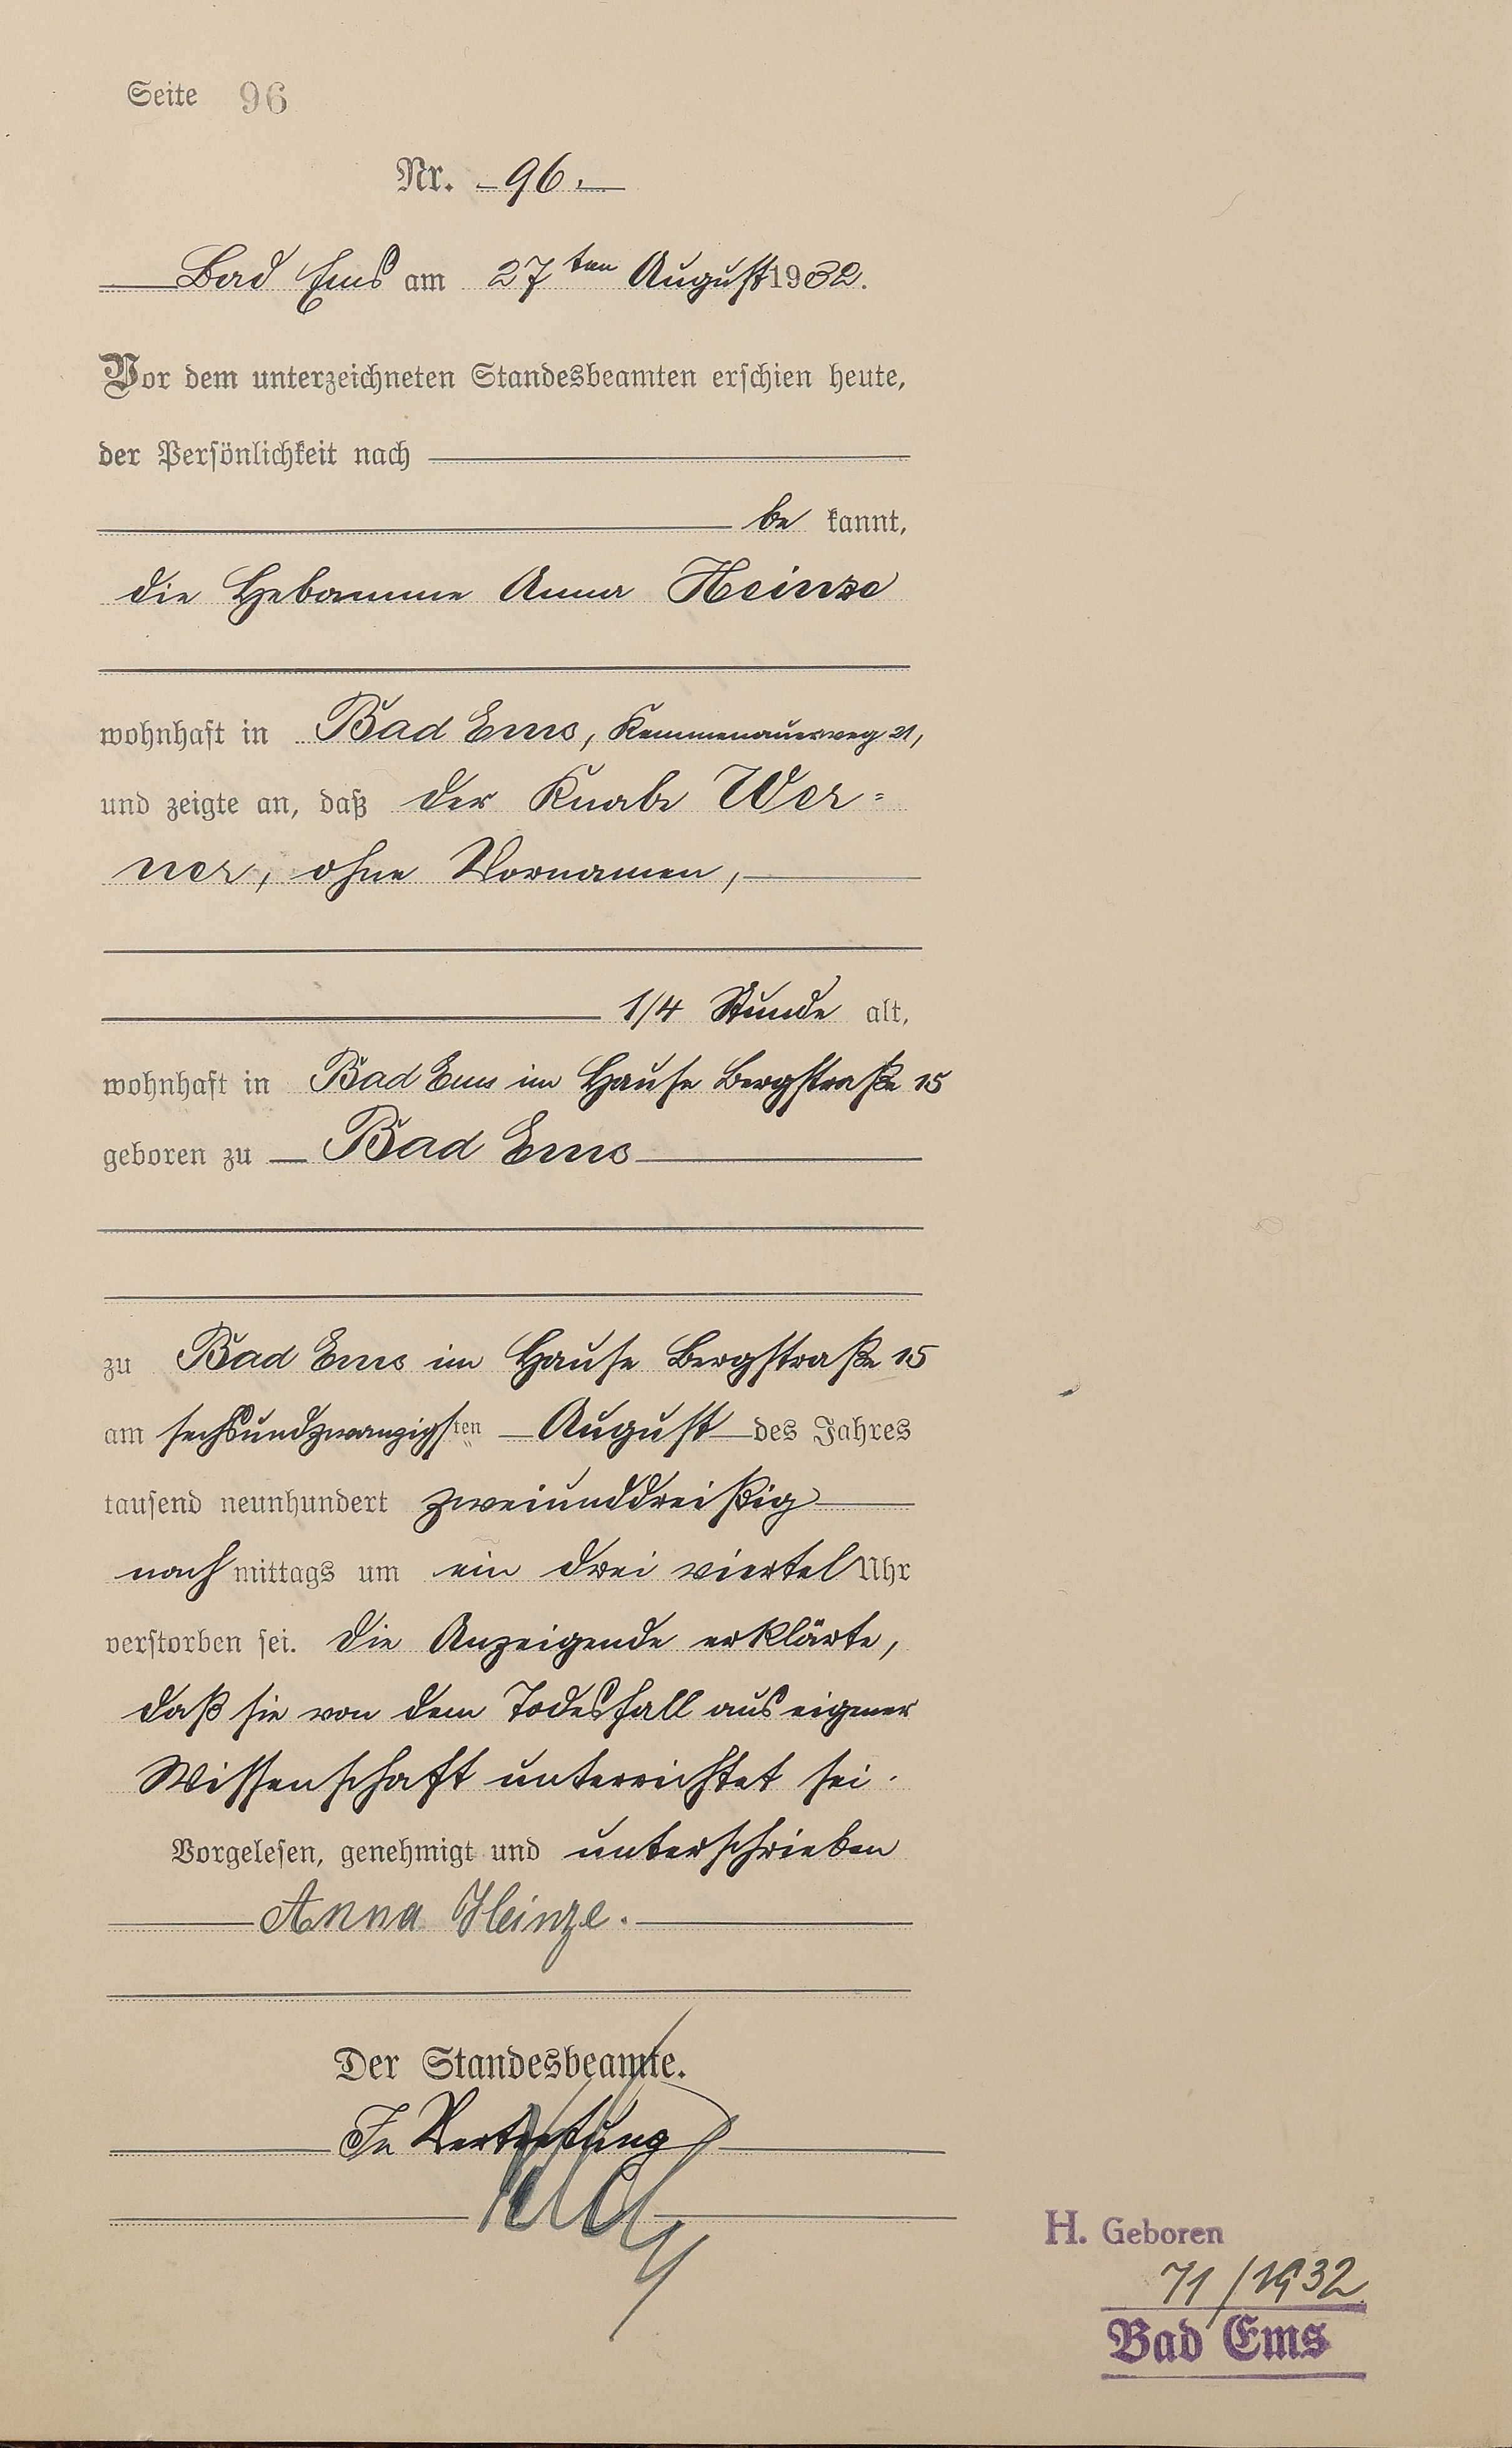 Seite 96
Nr. 96.
Bad Ems am 27ten August 1932.
Vor dem unterzeichneten Standesbeamten erschien heute,
der Persönlichkeit nach
be kannt,
die Hebamme Anna Heinze
wohnhaft in Bad Ems, Kemmenauerweg 21,
und zeigte an, daß der Knabe Wer=
ner, ohne Vornamen,
1/4 Stunde alt,
wohnhaft in Bad Ems im Hause Bergstraße 15
geboren zu Bad Ems
zu Bad Ems im Hause Bergstraße 15
am sechsundzwanzigsten August des Jahres
tausend neunhundert zweiunddreißig
nach mittags um ein drei viertel Uhr
verstorben sei. Die Anzeigende erklärte,
daß sie von dem Todesfall aus eigener
Wissenschaft unterrichtet sei.
Vorgelesen, genehmigt und unterschrieben
Anna Heinze.
Der Standesbeamte.
In Vertretung
H. Geboren
71/1932
Bad Ems